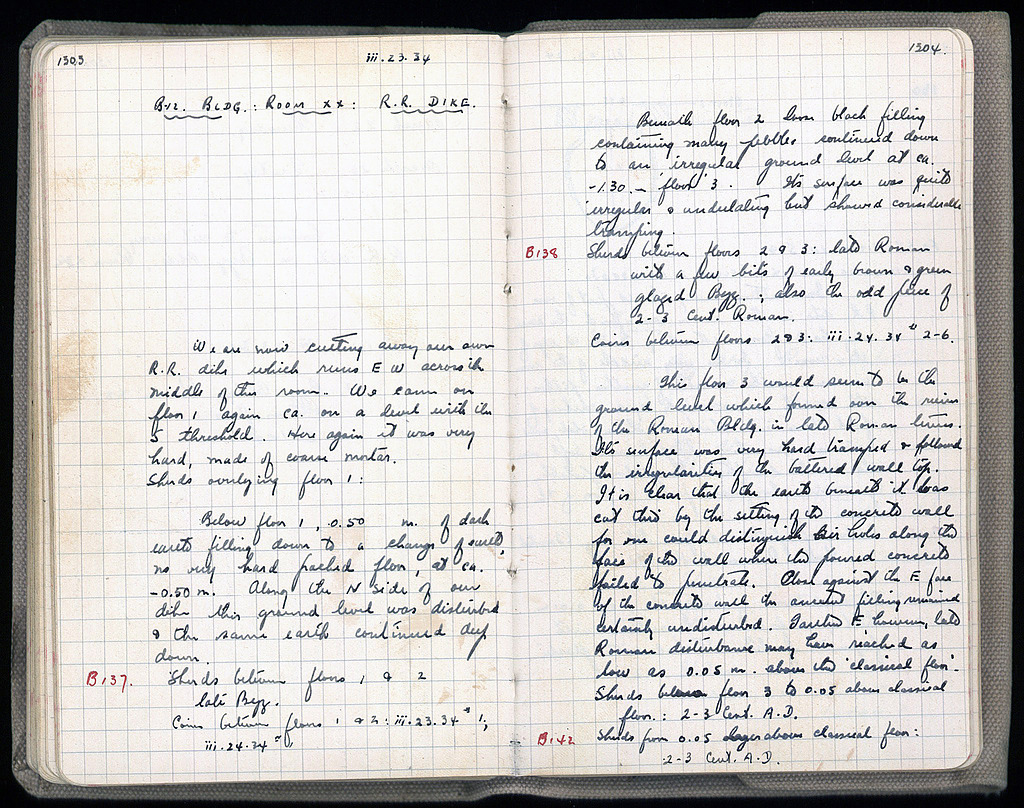 1303
iii.23.34
B-12. BLDG.: ROOM XX: R.R. DIKE.
We are now cutting away our own
R.R. dike which runs E W across the
middle of this room. We came on
floor 1 again ca. on a level with the
S threshold. Here again it was very
hard, made of coarse mortar.
Sherds overlying floor 1:
Below floor 1, 0.50 m. of dark
earth filling down to a change of earth,
no very hard packed floor, at ca.
-0.50 m. Along the N side of our
dike this ground level was disturbed
& the same earth continued deep
down.
B137. Sherds between floors 1 & 2
late Byz.
Coins between floors 1 & 2: iii.23.34 # 1;
iii.24.34 # 1
1304.
Beneath floor 2 loose black filling
containing many pebbles continued down
to an irregular ground level at ca.
-1.30 - 'floor' 3. Its surface was quite
irregular & undulating but showed considerable
tramping.
B138 Sherds between floors 2 & 3: late Roman
with a few bits of early brown & green
glazed Byz.; also the odd piece of
2-3 Cent. Roman.
Coins between floors 2 & 3: iii.24.34 # 2-6.
This floor 3 would seem to be the
ground level which formed over the ruins
of the Roman Bldg. in late Roman times.
Its surface was very hard tramped & followed
the irregularities of the battered wall top.
It is clear that the earth beneath it was
cut thro' by the setting of the concrete wall
for one could distinguish air holes along the
face of the wall where the poured concrete
failed to penetrate. Close against the E face
of the concrete wall the ancient filling remained
certainly undisturbed. Farther E however, late
Roman disturbance may have reached as
low as 0.05 m. above the 'classical floor'.
Sherds below floor 3 to 0.05 above classical
floor.: 2-3 Cent. A.D.
B142 Sherds from 0.05 above classical floor:
2-3 Cent. A.D.